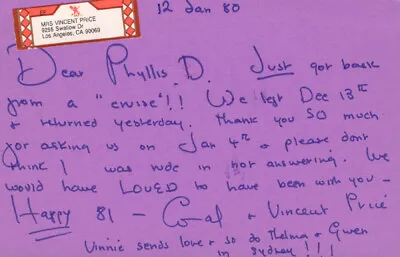 MRS VINCENT PRICE
9255 Swallow Dr
Los Angeles, CA 90069
12 Jan 80
Dear Phyllis D. Just got back
from a "cruise"!! We left Dec 13th
+ returned yesterday. Thank you SO much
for asking us on Jan 4th + please dont
think I was rude in not answering. We
would have LOVED to have been with you -
Happy 81 - Coral + Vincent Price
Vinnie sends love + so do Thelma + Gwen
in Sydney!!!